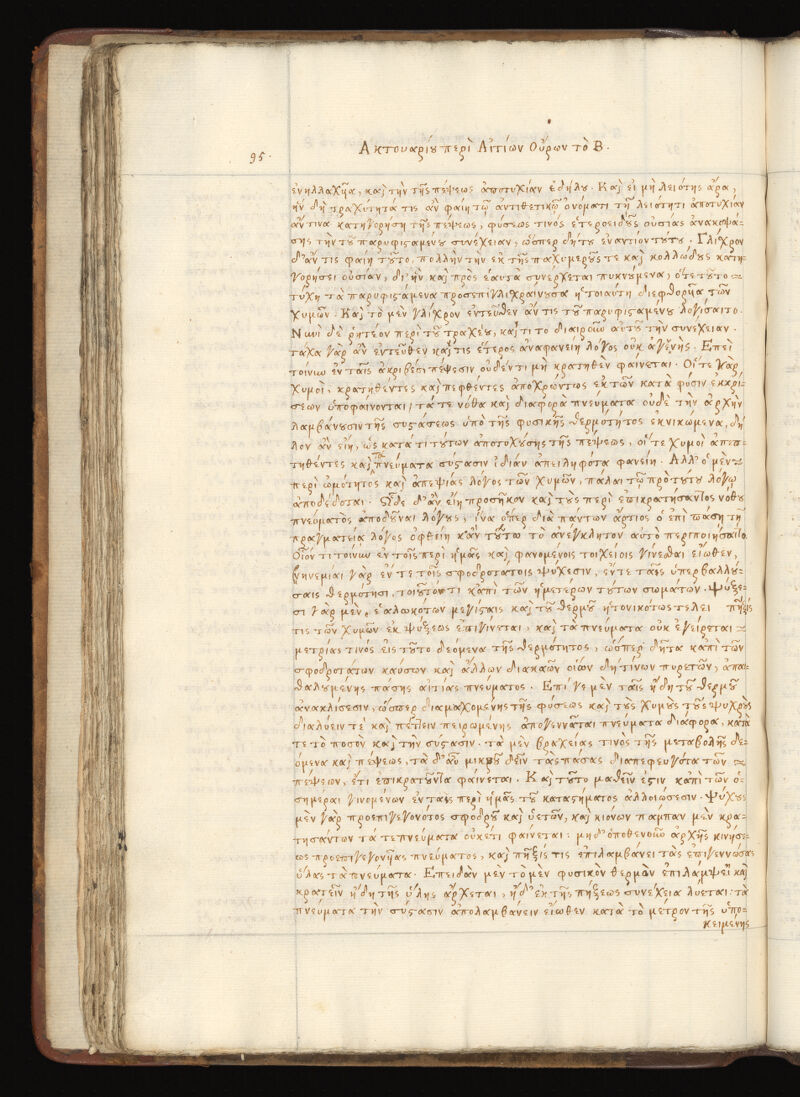 95.
Ἀκτουαρίου περὶ Αἰτίων Οὔρων τὸ Β.
ἐνηλλαχῆα, καὶ τὴν τῆς πέψεως ἀποτυχίαν ἐδήλου. Καὶ εἰ μὴ λειότης ἄρα,
ἣν δὴ τραχύτητά τις ἂν φαίη τῷ ἀντιθετικῷ ὀνόματι τῇ λειότητι ἀποτυχίαν
ἄν τινα κατηγόρηση τῆς πέψεως, φύσεως τινὸς ἑτεροειδοῦς οὐσίας ἀνακοψά-
σης τὴν τοῦ παρυφισταμένου συνέχειαν, ὥσπερ δὴ τὸ ἐναντίον τούτου. Γλίχρον
δ' ἄν τις φαίη τοῦτο, πολλὴν τὴν ἐκ τῆς παχυμεροῦς τε καὶ κολλώδους κατη-
γορήσει οὐσίαν, δι' ἣν καὶ πρὸς ἑαυτὰ συνέρχεται πυκνούμενα, ὅτε τοῦτο
τύχη τὰ παρυφιστάμενα προσεπιγλιχραίνουσα ἡ τοιαύτη διεφθορῆα τῶν
χυμῶν. Καὶ τὸ μὲν γλίχρον ἐντεῦθεν ἄν τις τοῦ παρυφισταμένου λογίσαιτο.
Νυνὶ δὲ ῥητέον περὶ τοῦ τραχέος, καὶ τί τὸ διαιροῦν αὐτοῦ τὴν συνέχειαν.
τάχα γὰρ ἂν ἐντεῦθεν καί τις ἕτερος ἀναφανείη λόγος οὐκ ἀγενὴς. Ἐπεὶ
τοίνυν ἐν ταῖς ἀκριβέσι πέψεσιν οὐδέν τι μὴ κρατηθὲν φαίνεται. Οἵ τε γὰρ
χυμοὶ, κρατηθέντες καὶ πεφθέντες ἀποχρώντως ἐκ τῶν κατὰ φύσιν ἐκκρί-
σεων ὑποφαίνονται, τά τε νόθα καὶ διάφορα πνεύματα οὐδὲ τὴν ἀρχὴν
λαμβάνουσιν τῆς συστάσεως ὑπὸ τῆς φυσικῆς θερμότητος ἐκνικώμενα, δῆ
λον ἂν εἴη, ὡς κατά τι τούτων ἀποτυχούσης τῆς πέψεως, οἵ τε χυμοὶ ἀπεπ-
τηθέντες καὶ τὰ πνεύματα σύστασιν ἰδίαν ἀπειληφότα φανείη. Ἀλλ' ὁ μὲν
περὶ ὠμότητος καὶ ἀπεψίας λόγος τῶν χυμῶν, πάλαι τῷ πρὸ τούτου λόγῳ
ἀποδέδοται. Ὧδε δ' ἂν εἴη προσῆκον καὶ τοὺς περὶ ἐπικρατήσαντος νόθου
πνεύματος ἀποδοῦναι λόγους, ἵνα ὅπερ διὰ πάντων ἄρτιος ὁ ἐπὶ πάσῃ τῇ
πραγματείᾳ λόγος ὀφθείη κἀν τούτῳ τὸ ἀνέγκλητον αὐτὸ περιποιήσαιτο.
Οἷόν τι τοίνυν ἐν τοῖς περὶ ἡμᾶς καὶ φαινομένοις στοιχείοις γίνεσθαι εἴωθεν,
νηνεμίαι γὰρ ἔν τε τοῖς σφοδροτάτοις ψύχεσιν, ἔν τε ταῖς ὑπερβαλλού-
σαις θερμότησι, τοιοῦτόν τι κἀπὶ τῶν ἡμετέρων τούτων σωμάτων. Ψύξε-
σι γὰρ μὲν, ἑαλωκότων μεγίσταις καὶ τοῦ θερμοῦ ἠτονικότος τελεί πῆξίς
τις τῶν χυμῶν ἐκ ψύξεως ἐπιγίνεται, καὶ τὰ πνεύματα οὐκ ἐγείρεται
μετρίας τινὸς εἰς τοῦτο δεόμενα τῆς θερμότητος, ὥσπερ δῆτα κἀπὶ τῶν
σφοδροτάτων καύσων καὶ ἄλλων διακαῶν οἵων δή τινων πυρετῶν, ἀπαι-
θαλουμένης πάσης αἰτίας πνεύματος. Ἐπί γε μὲν ταῖς ἤδη τοῦ θερμοῦ
ἀνακλίσεσιν, ὥσπερ διαμαχομένης τῆς φύσεως καὶ τοὺς χυμοὺς τοὺς ψυχροὺς
διαλύειν τὲ καὶ πέττειν πειρωμένης ἀπογεννᾶται πνεύματα διάφορα, κατά
τε τὸ ποσὸν καὶ τὴν σύστασιν. τὰ μὲν βραχείας τινὸς τῆς μεταβολῆς δε-
όμενα καὶ πέψεως, τὰ δ' αὖ μικροῦ δεῖν τὰς πάσας διαπεφευγότα τῶν
πέψεων, ἔτι ἐπικρατοῦντα φαίνεται. Καὶ τοῦτο μαθεῖν ἐστιν κἀπὶ τῶν ὁ-
σημέραι γινομένων ἐν ταῖς περὶ ἡμᾶς τοῦ καταστήματος ἀλλοιώσεσιν. Ψύχους
μὲν γὰρ προεπιγεγονότος σφοδροῦ καὶ ὑετῶν, καὶ χιόνων πάμπαν μὲν κρα-
τησάντων τά τε πνεύματα οὐκέτι φαίνεται: μηδ' ὁποθενοῦν ἀρχῆς κινήσε-
ως προεπιγεγονῆας πνεύματος, καὶ πῆξίς τις ἐπιλαμβάνει τὰς ἐπιγεννώσας
ὕλας τὰ πνεύματα. Ἐπειδὰν μὲν τὸ μὲν φυσικὸν θερμὸν ἐπιλάμψει καὶ
κρατεῖν ἤδη τῆς ὕλης ἄρχεται, ἡ δ' ἐκ τῆς πήξεως συνέχεια λύεται: τὰ
πνεύματα τὴν σύστασιν ἀπολαμβάνειν εἴωθεν κατὰ τὸ μέτρον τῆς ὑπο-
κειμένης